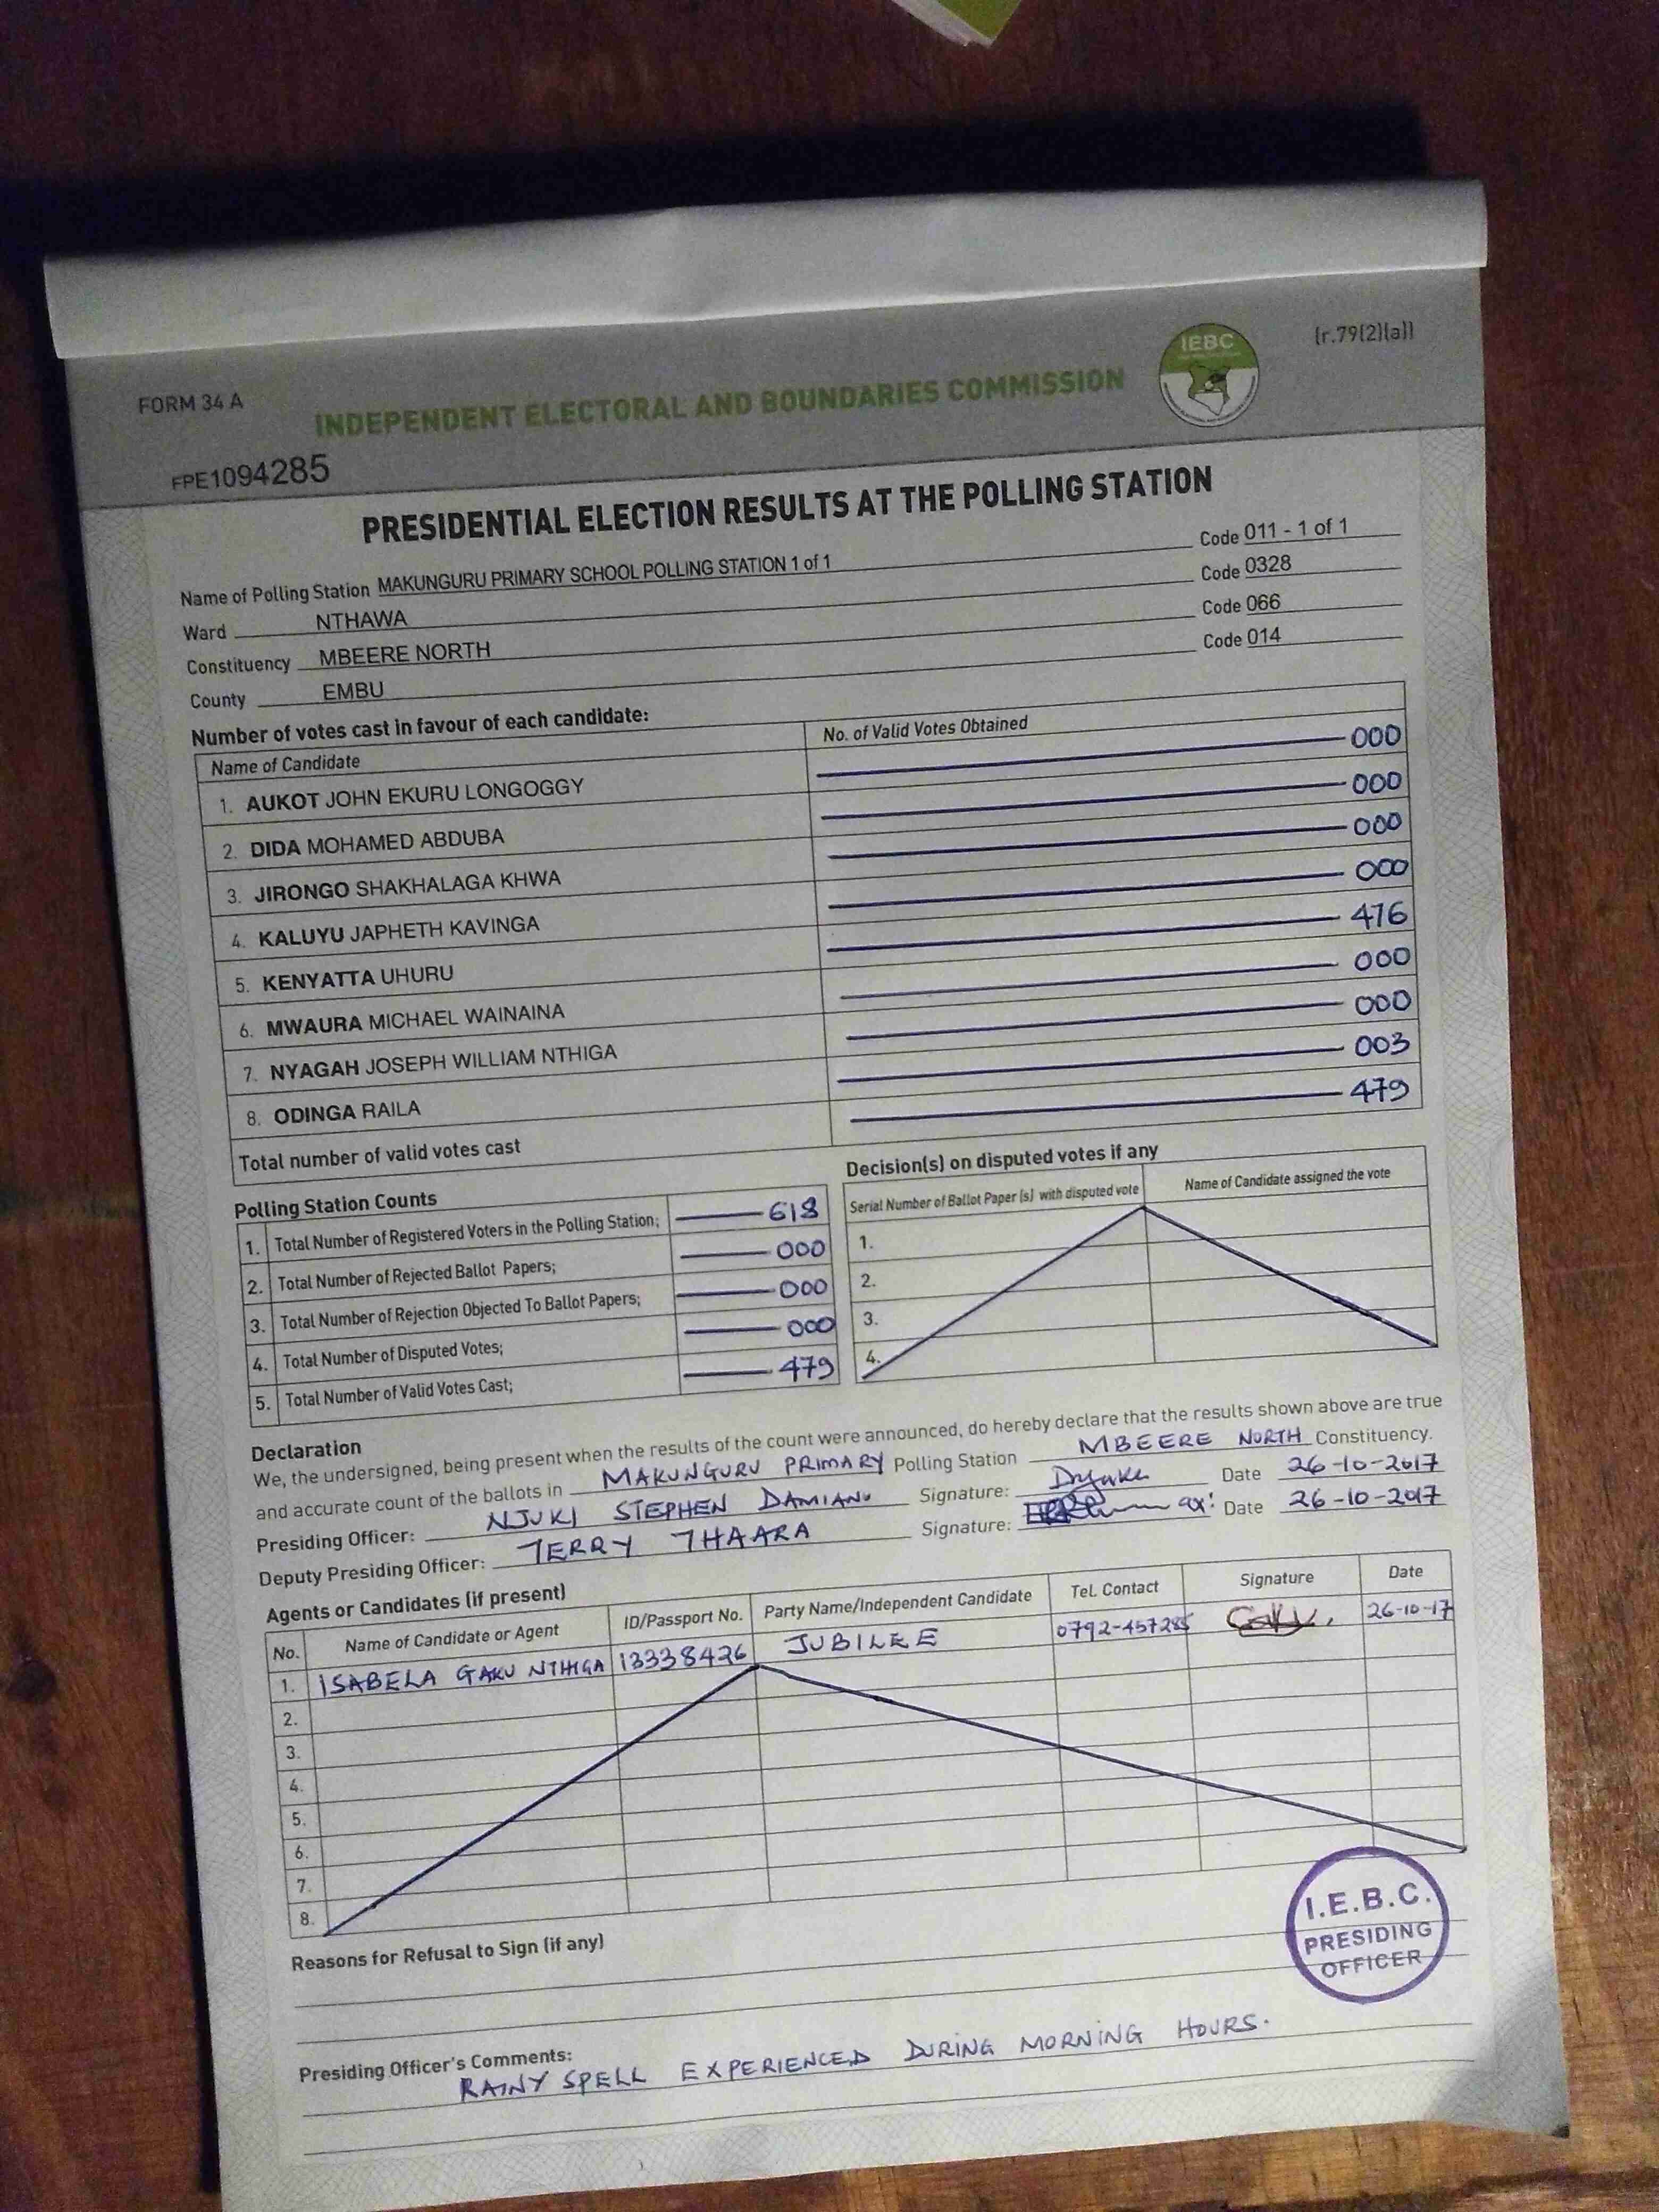 (r.79(2)(a))
FORM 34 A
INDEPENDENT ELECTORAL AND BOUNDARIES COMMISSION
IEBC
FPE1094285
PRESIDENTIAL ELECTION RESULTS AT THE POLLING STATION
Name of Polling Station MAKUNGURU PRIMARY SCHOOL POLLING STATION 1 of 1 Code 011 - 1 of 1
Ward NTHAWA Code 0328
Constituency MBEERE NORTH Code 066
County EMBU Code 014
Number of votes cast in favour of each candidate:
Name of Candidate No. of Valid Votes Obtained
1. AUKOT JOHN EKURU LONGOGGY 000
2. DIDA MOHAMED ABDUBA 000
3. JIRONGO SHAKHALAGA KHWA 000
4. KALUYU JAPHETH KAVINGA 000
5. KENYATTA UHURU 476
6. MWAURA MICHAEL WAINAINA 000
7. NYAGAH JOSEPH WILLIAM NTHIGA 000
8. ODINGA RAILA 003
Total number of valid votes cast 479
Polling Station Counts
1. Total Number of Registered Voters in the Polling Station; 618
2. Total Number of Rejected Ballot Papers; 000
3. Total Number of Rejection Objected To Ballot Papers; 000
4. Total Number of Disputed Votes; 000
5. Total Number of Valid Votes Cast; 479
Decision(s) on disputed votes if any
Serial Number of Ballot Paper (s) with disputed vote Name of Candidate assigned the vote
1.
2.
3.
4.
Declaration
We, the undersigned, being present when the results of the count were announced, do hereby declare that the results shown above are true
and accurate count of the ballots in MAKUNGURU PRIMARY Polling Station MBEERE NORTH Constituency.
Presiding Officer: NJUKI STEPHEN DAMIANO Signature: Date 26-10-2017
Deputy Presiding Officer: TERRY THAARA Signature: Date 26-10-2017
Agents or Candidates (if present)
No. Name of Candidate or Agent ID/Passport No. Party Name/Independent Candidate Tel. Contact Signature Date
1. ISABELA GAKU NTHIGA 13338426 JUBILEE 0792-457285 Gaku. 26-10-17
2.
3.
4.
5.
6.
7.
8.
Reasons for Refusal to Sign (if any)
I.E.B.C.
PRESIDING
OFFICER
Presiding Officer's Comments:
RAINY SPELL EXPERIENCED DURING MORNING HOURS.